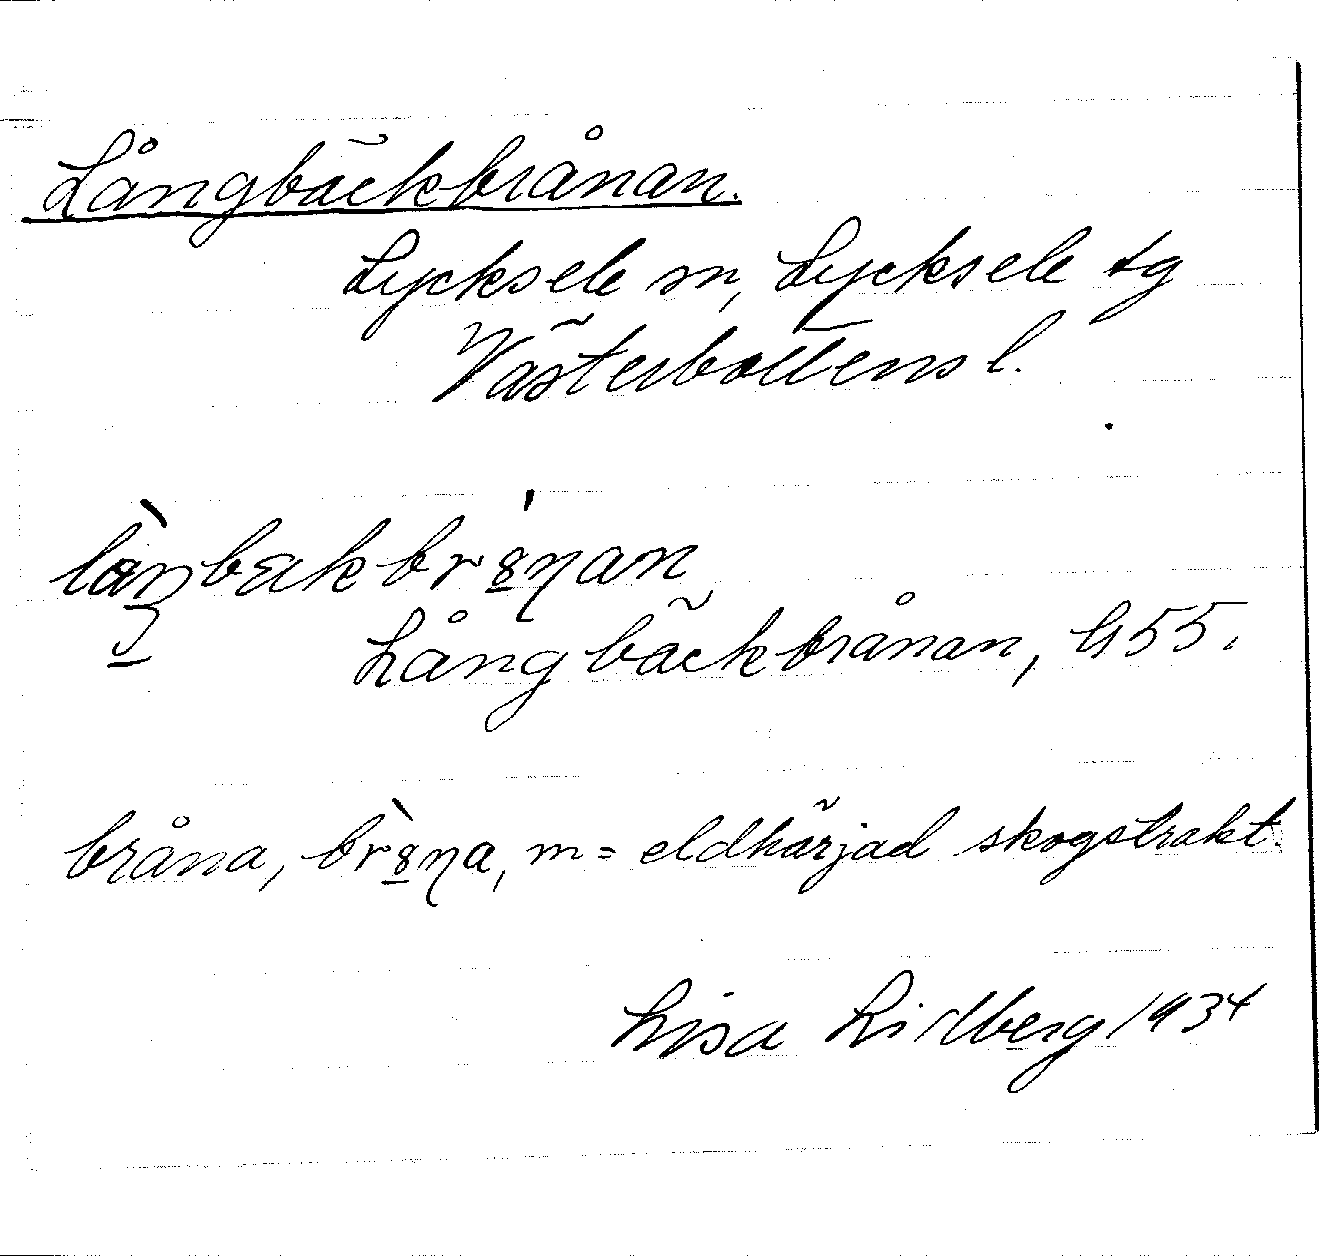 Långbäckbrånan.
Lycksele sn, Lycksele tg
Västerbottens l.
Långbäckbrånan, G55.
bråna, m = eldhärjad skogstrakt.
Lisa Lidberg 1934